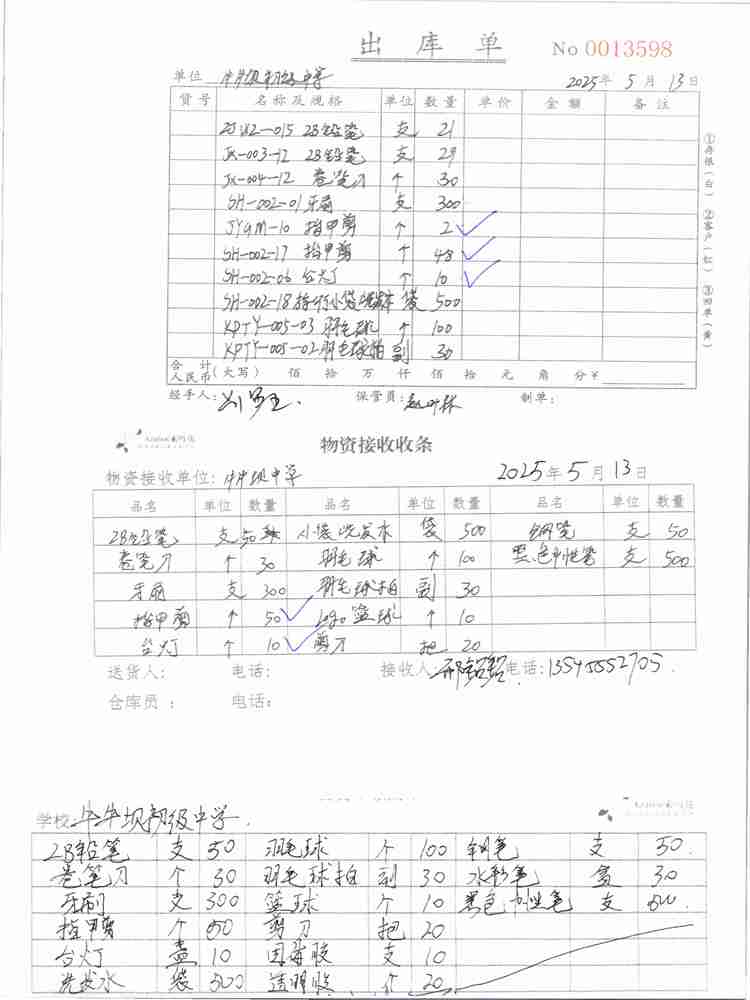 出库单 No 0013598
单位 牛牛坝初级中学 2025年 5月 13日
货号 名称及规格 单位 数量 单价 金额 备注
2B铅笔 支 21
JX-003-12 2B铅笔 支 29
JX-004-12 卷笔刀 个 30
SH-002-01 牙刷 支 300
JYGM-10 指甲剪 个 2
SH-002-17 指甲剪 个 48
SH-002-06 台灯 个 10
SH-002-18 小袋洗发水 袋 500
KPTY-005-03 羽毛球 个 100
KPTY-005-02 羽毛球拍 副 30
合计
人民币(大写) 佰 拾 万 仟 佰 拾 元 角 分 ¥
经手人: 保管员: 制单:
①存根(白) ②客户(红) ③回单(黄)
物资接收收条
物资接收单位: 牛牛坝中学 2025年5月13日
品名 单位 数量 品名 单位 数量 品名 单位 数量
2B铅笔 支 50 小袋洗发水 袋 500 钢笔 支 50
卷笔刀 个 30 羽毛球 个 100 黑色中性笔 支 500
牙刷 支 300 羽毛球拍 副 30
指甲剪 个 50 logo篮球 个 10
台灯 个 10 剪刀 把 20
送货人: 电话: 接收人: 电话: 13545552705.
仓库员: 电话:
学校: 牛牛坝初级中学.
2B铅笔 支 50 羽毛球 个 100 钢笔 支 50.
卷笔刀 个 30 羽毛球拍 副 30 水彩笔 盒 30
牙刷 支 300 篮球 个 10 黑色中性笔 支
指甲剪 个 50 剪刀 把 20
台灯 盏 10 支 10
洗发水 袋 500 透明胶 个 20